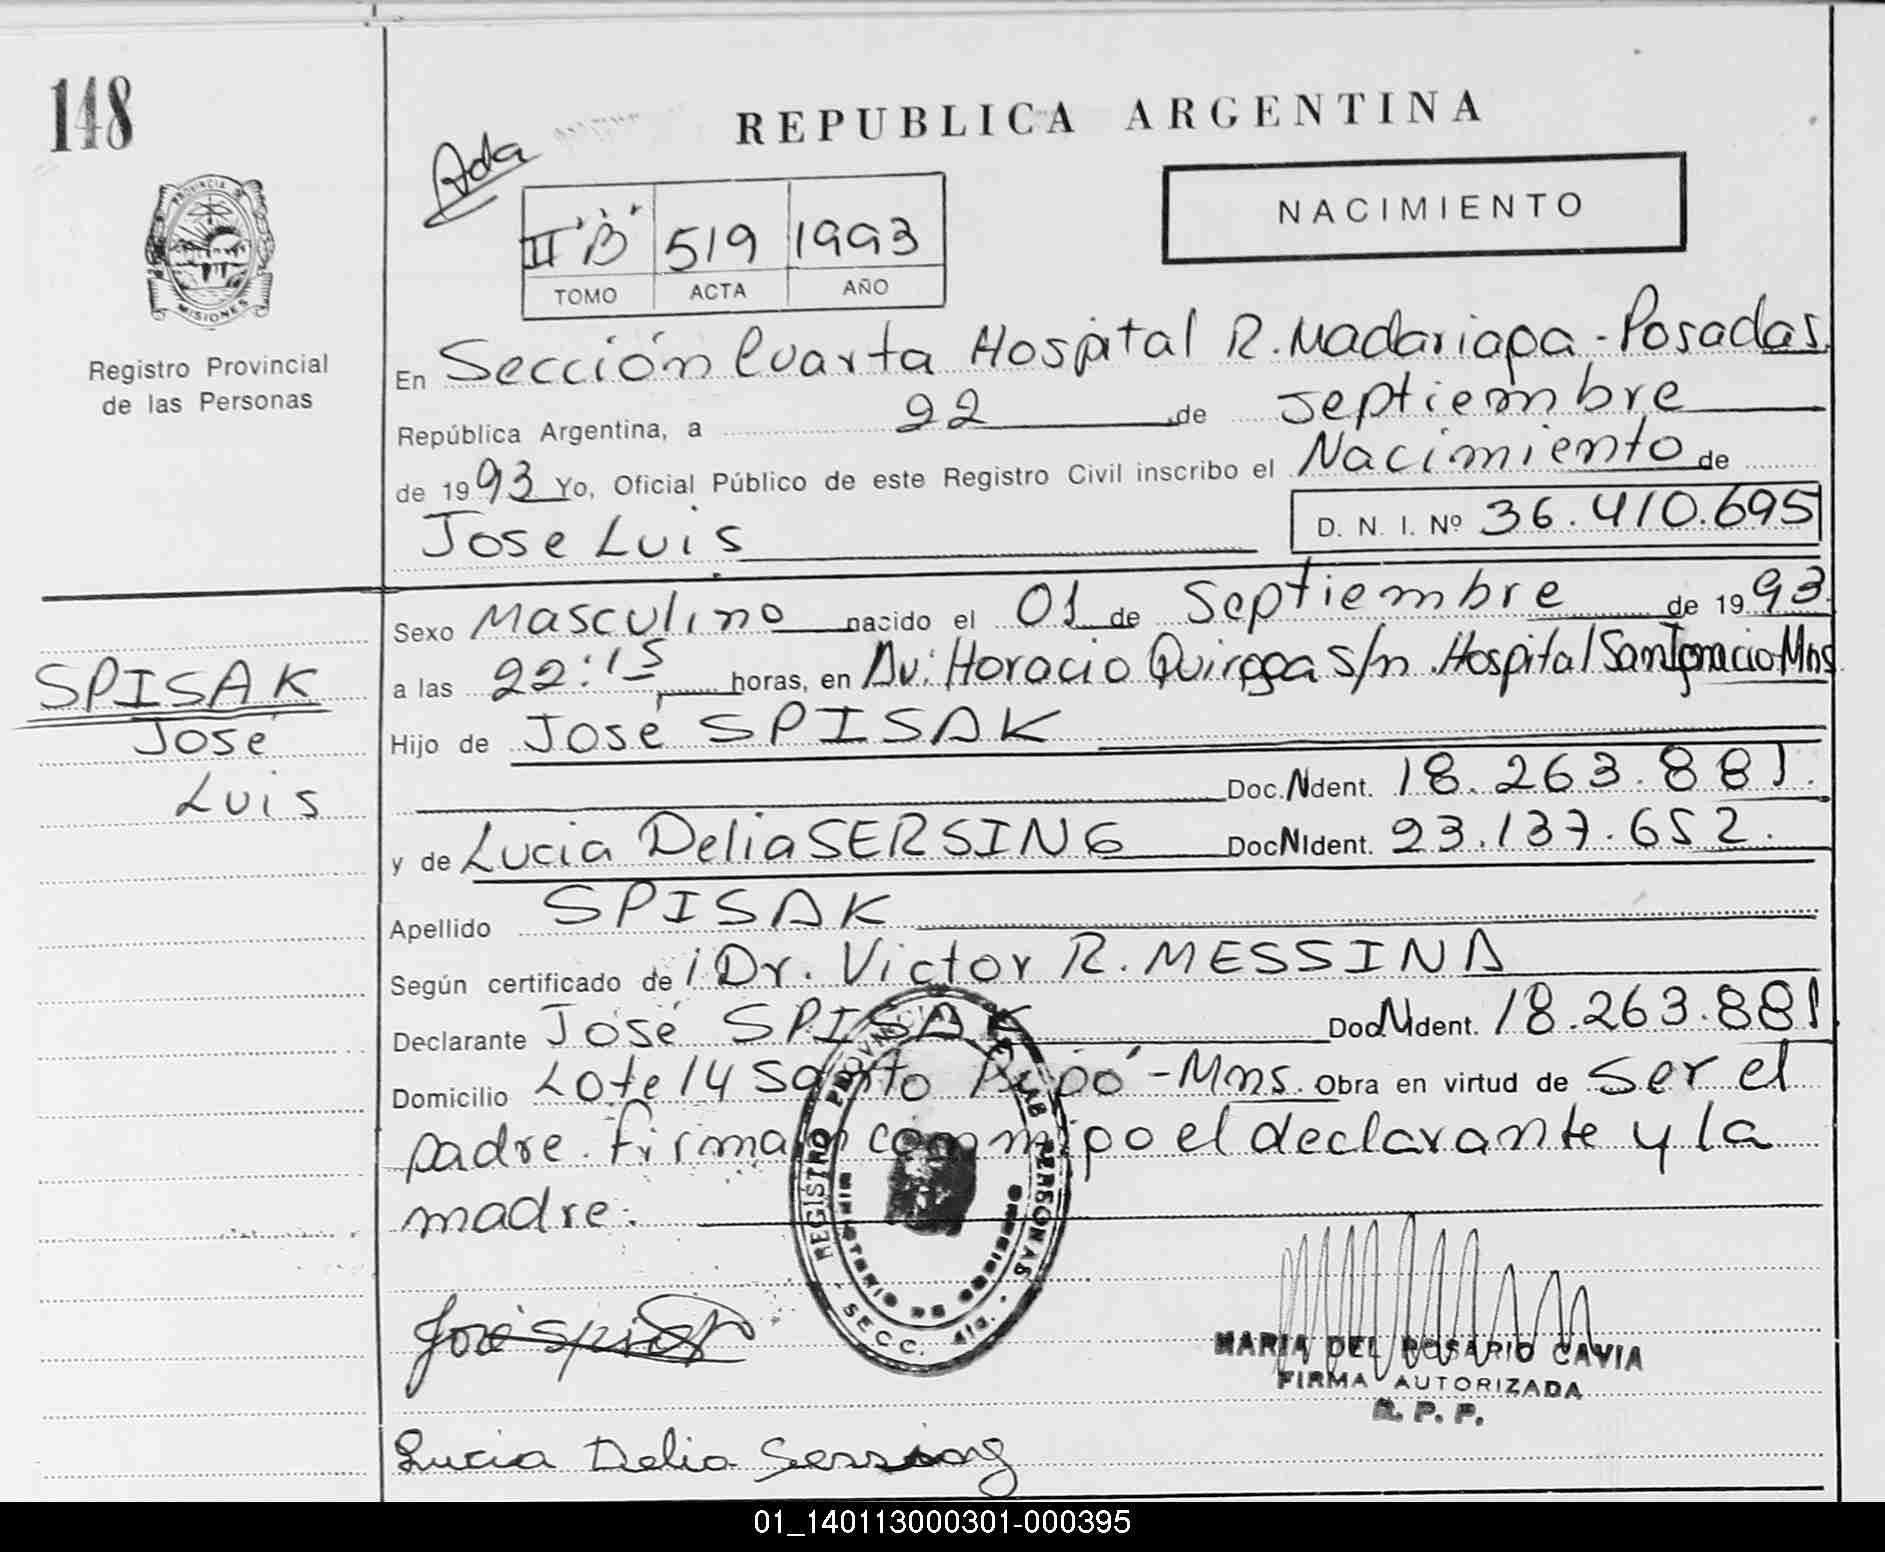 148
REPUBLICA ARGENTINA
Ada
NACIMIENTO
II "B" 519 1993
TOMO ACTA AÑO
PROVINCIA DE
MISIONES
Registro Provincial
de las Personas
En Sección Cuarta Hospital R. Madariaga - Posadas
República Argentina, a 22 de septiembre
de 1993 Yo, Oficial Público de este Registro Civil inscribo el Nacimiento de
Jose Luis D. N. I. Nº 36.410.695
Sexo Masculino nacido el 01 de Septiembre de 1993
a las 22:15 horas, en Av: Horacio Quiroga s/n. Hospital San Ignacio-Mns
SPISAK
José
Luis
Hijo de José SPISAK
Doc. N Ident. 18.263.881.
y de Lucia Delia SERSING Doc N Ident. 23.137.652.
Apellido SPISAK
Según certificado de Dr. Victor R. MESSINA
Declarante José SPISAK Doc N Ident. 18.263.881
Domicilio Lote 14 Santo Pipó - Mns. Obra en virtud de ser el
padre. Firman conmigo el declarante y la
madre.
REGISTRO PROVINCIAL DE LAS PERSONAS
MINISTERIO DE GOBIERNO
SECC. 4ta.
José Spisak
MARIA DEL ROSARIO CAVIA
FIRMA AUTORIZADA
R. P. P.
Lucia Delia Sersing
01_140113000301-000395